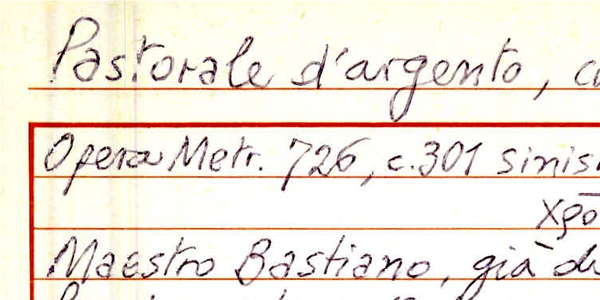 Pastorale d'argento,
Opera Metr. 726, c. 301 sinis
Xpō
Maestro Bastiano, già